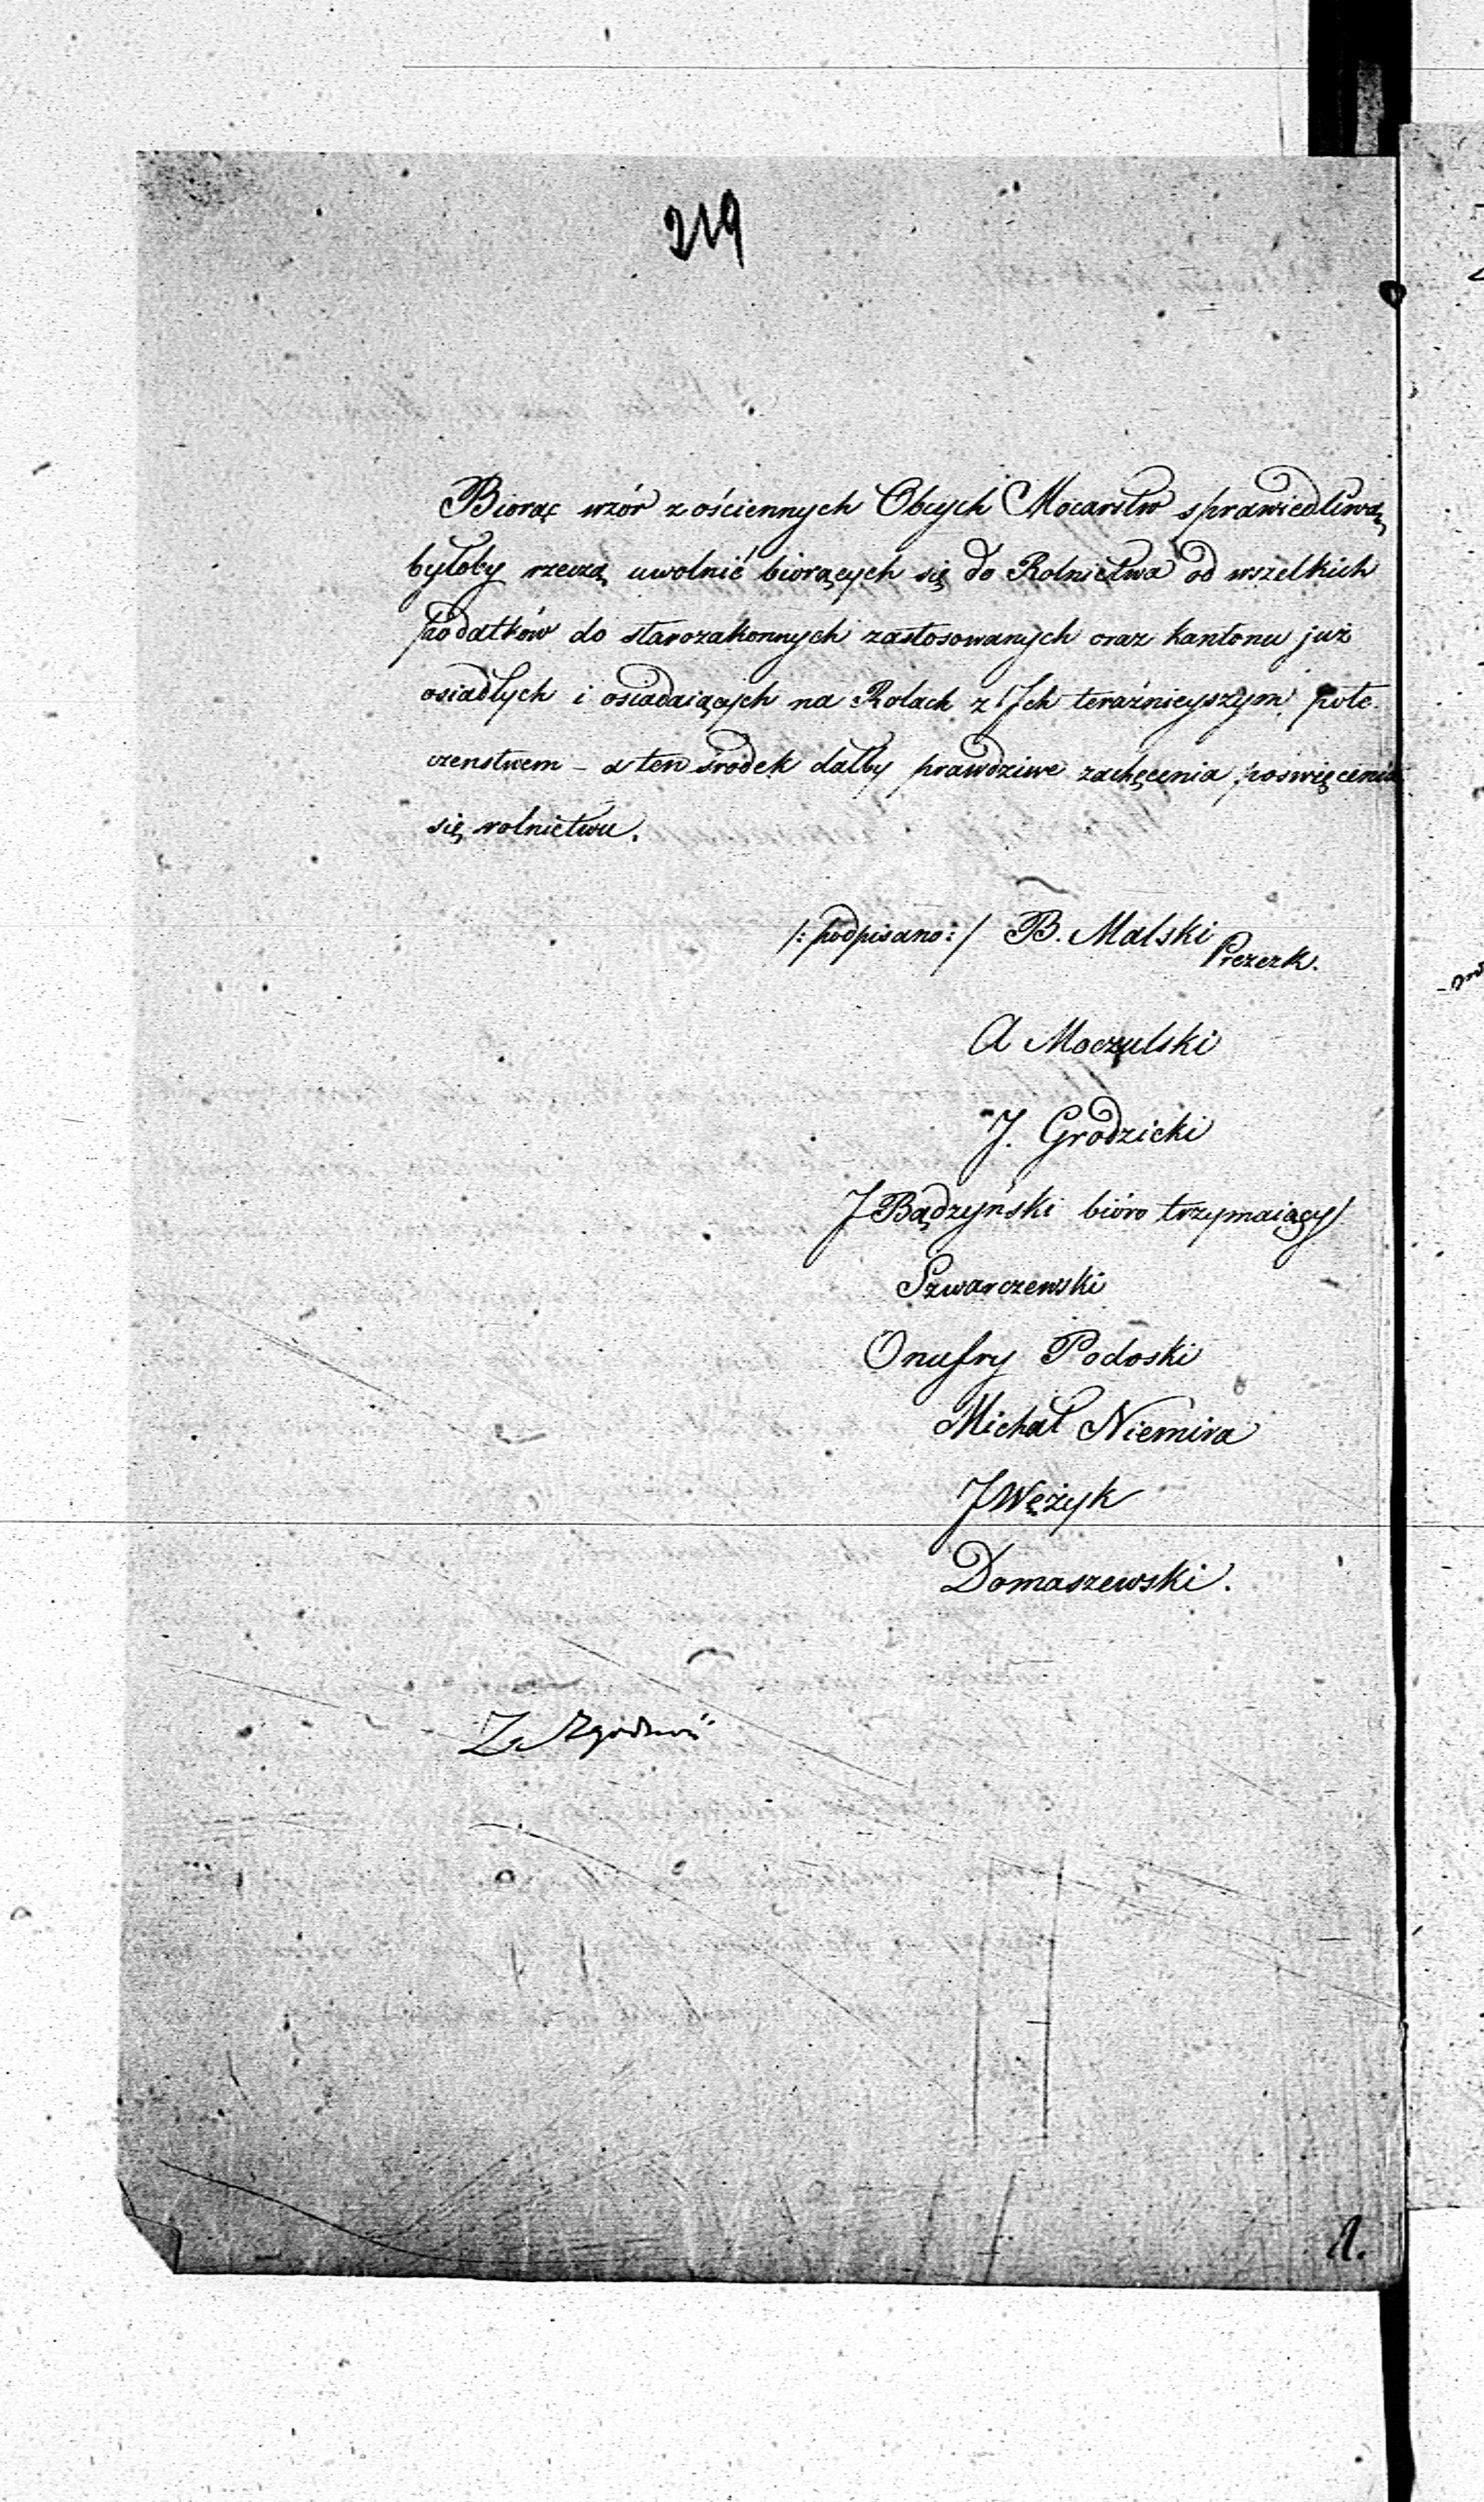 219
Biorąc wzór z ościennych Obcych Mocarstw sprawiedliwą
byłoby rzeczą uwolnić biorących się do Rolnictwa od wszelkich
podatków do starozakonnych zastosowanych oraz kantonu już
osiadłych i osiadaiących na Rolach z Jch teraźnieyszym poto
czenstwem - a ten środek dałby prawdziwe zachęcenia poswięcenia
się rolnictwu.
/: podpisano :/ B. Malski
Prezeck.
A Moczulski
J. Grodzicki
J Bądzyński bióro trzymaiący
Szwarczewski
Onufry Podoski
Michał Niemira
J Wężyk
Domaszewski.
Za Zgodność